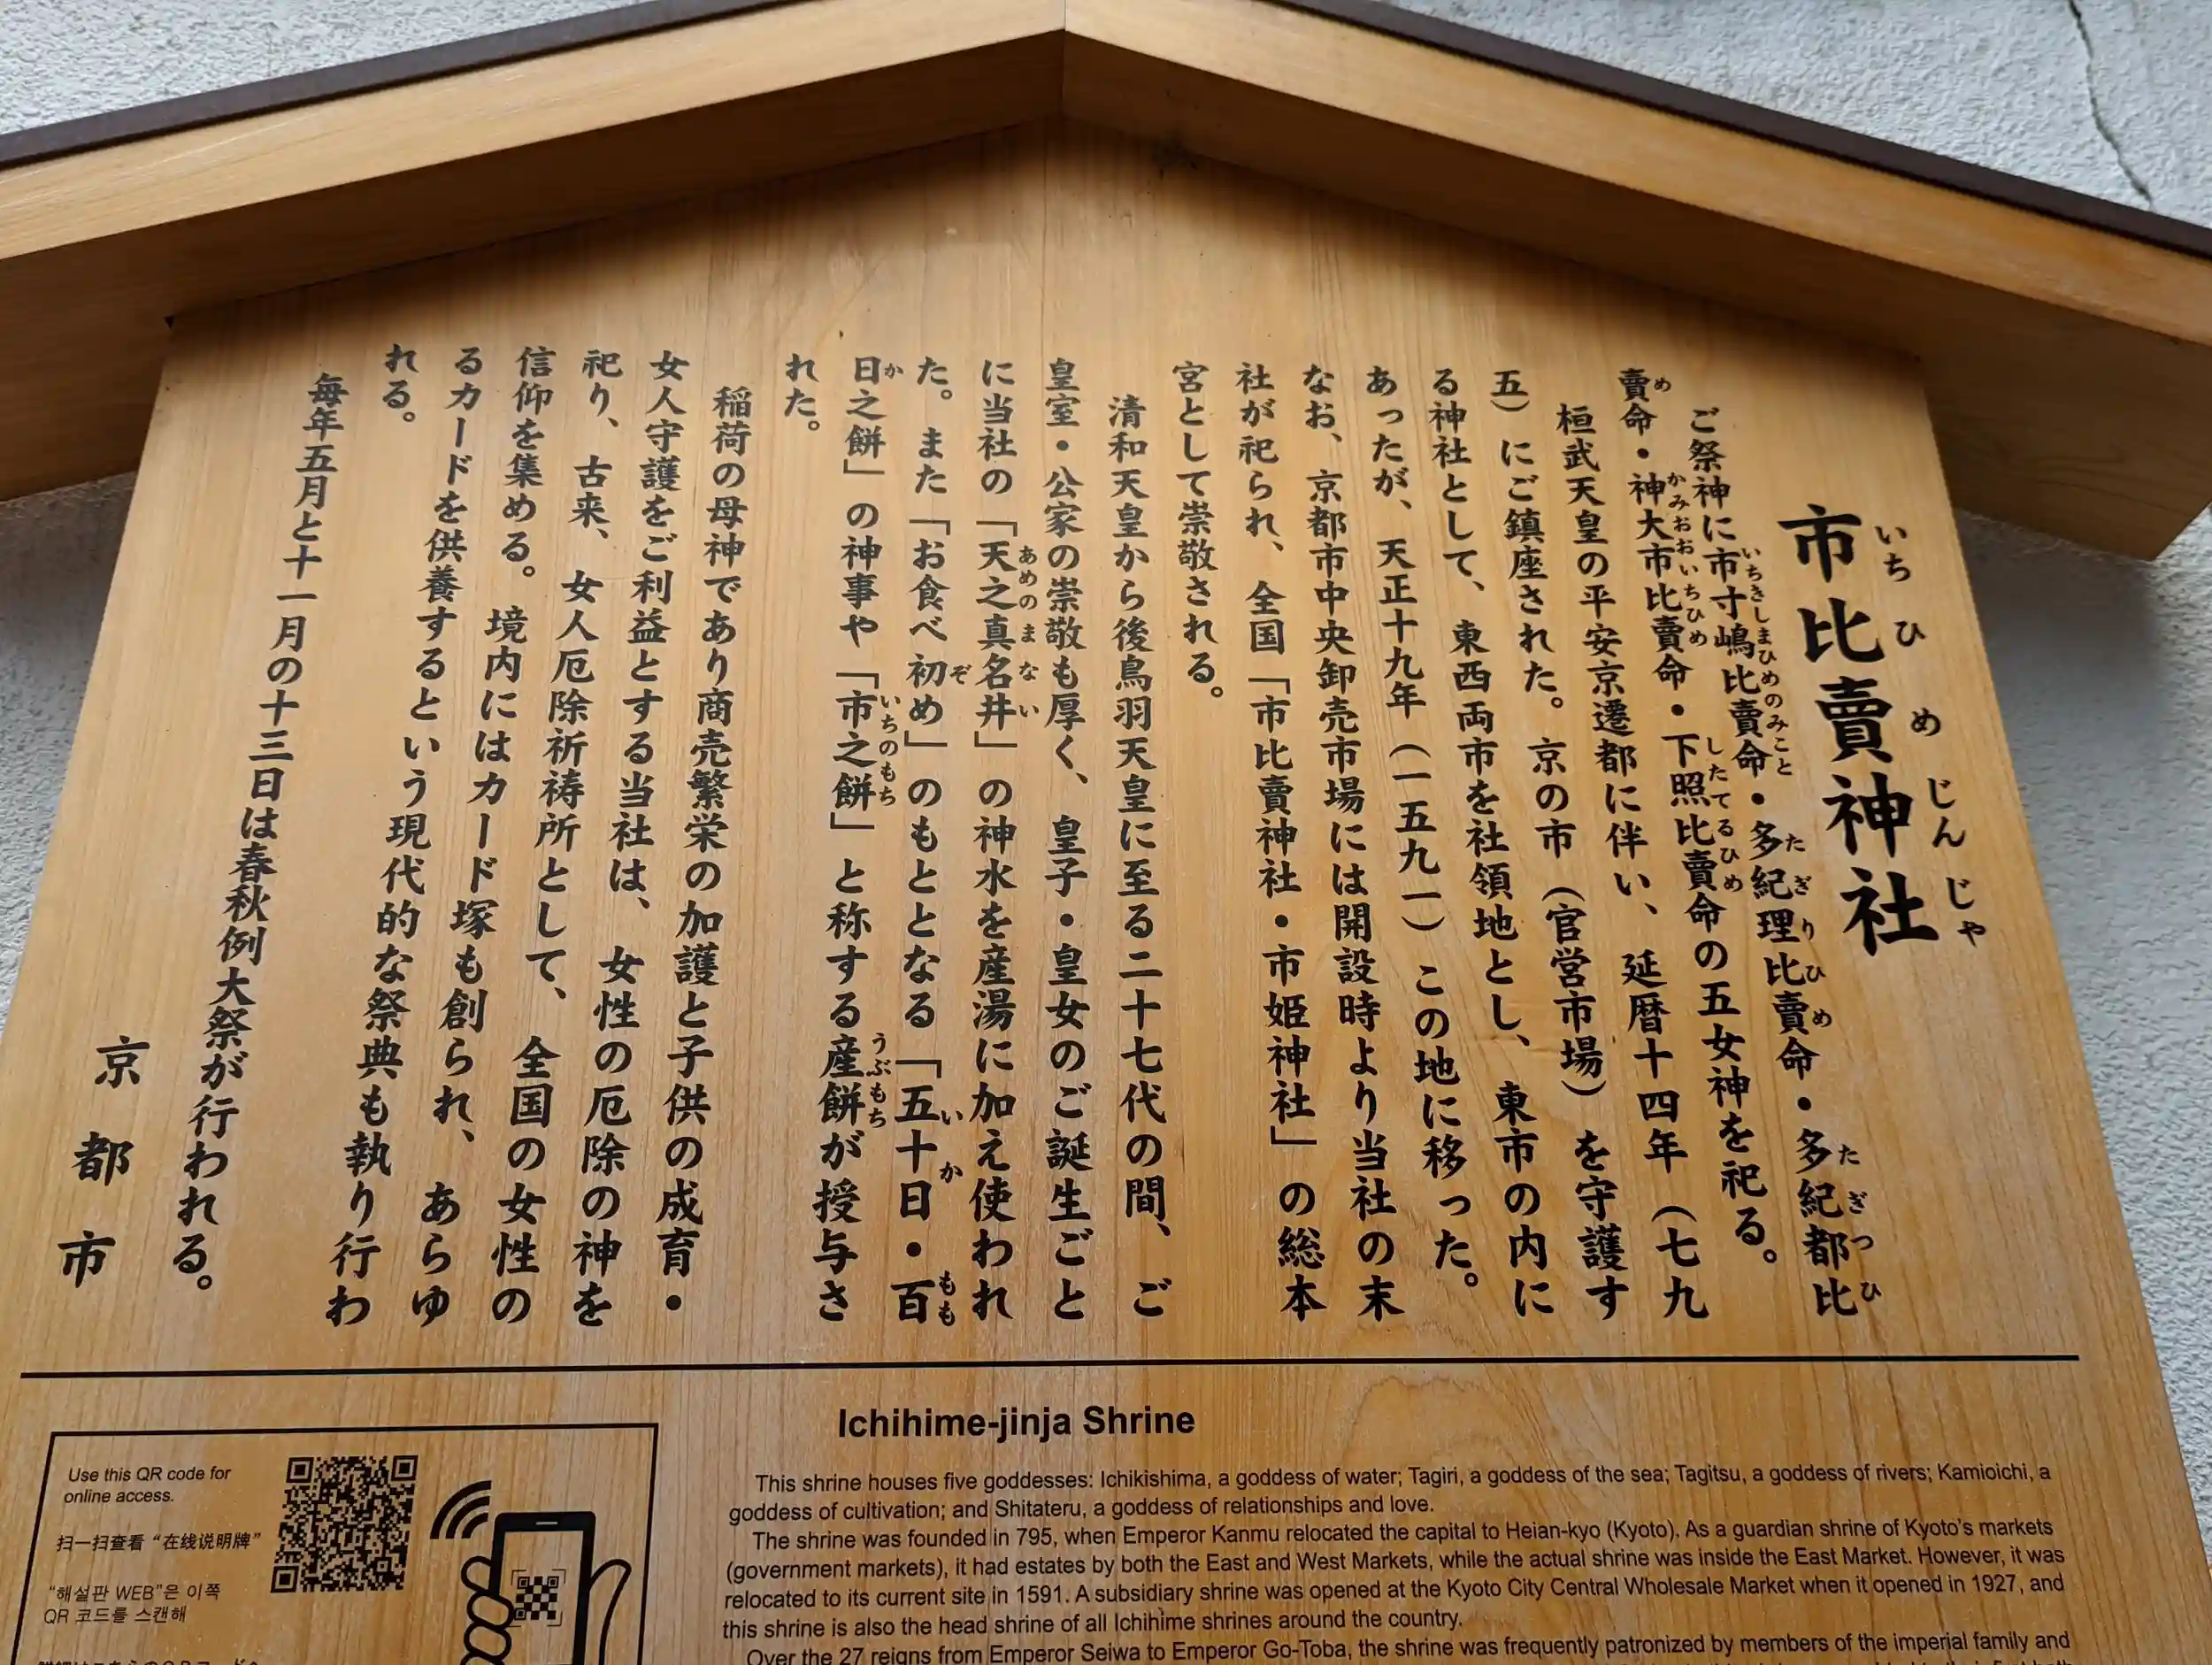 市比賣神社
いちひめじんじゃ
ご祭神に市寸嶋比賣命・多紀理比賣命・多紀都比
いちきしまひめのみこと たぎりひめ たぎつひ
賣命・神大市比賣命・下照比賣命の五女神を祀る。
め かみおおいちひめ したてるひめ
桓武天皇の平安京遷都に伴い、延暦十四年（七九
五）にご鎮座された。京の市（官営市場）を守護す
る神社として、東西両市を社領地とし、東市の内に
あったが、天正十九年（一五九一）この地に移った。
なお、京都市中央卸売市場には開設時より当社の末
社が祀られ、全国「市比賣神社・市姫神社」の総本
宮として崇敬される。
清和天皇から後鳥羽天皇に至る二十七代の間、ご
皇室・公家の崇敬も厚く、皇子・皇女のご誕生ごと
に当社の「天之真名井」の神水を産湯に加え使われ
あめのまない
た。また「お食べ初め」のもととなる「五十日・百
ぞ いか もも
日之餅」の神事や「市之餅」と称する産餅が授与さ
か いちのもち うぶもち
れた。
稲荷の母神であり商売繁栄の加護と子供の成育・
女人守護をご利益とする当社は、女性の厄除の神を
祀り、古来、女人厄除祈祷所として、全国の女性の
信仰を集める。境内にはカード塚も創られ、あらゆ
るカードを供養するという現代的な祭典も執り行わ
れる。
毎年五月と十一月の十三日は春秋例大祭が行われる。
京都市
Ichihime-jinja Shrine
This shrine houses five goddesses: Ichikishima, a goddess of water; Tagiri, a goddess of the sea; Tagitsu, a goddess of rivers; Kamioichi, a
goddess of cultivation; and Shitateru, a goddess of relationships and love.
The shrine was founded in 795, when Emperor Kanmu relocated the capital to Heian-kyo (Kyoto). As a guardian shrine of Kyoto's markets
(government markets), it had estates by both the East and West Markets, while the actual shrine was inside the East Market. However, it was
relocated to its current site in 1591. A subsidiary shrine was opened at the Kyoto City Central Wholesale Market when it opened in 1927, and
this shrine is also the head shrine of all Ichihime shrines around the country.
Over the 27 reigns from Emperor Seiwa to Emperor Go-Toba, the shrine was frequently patronized by members of the imperial family and
Use this QR code for
online access.
扫一扫查看“在线说明牌”
“해설판 WEB”은 이쪽
QR 코드를 스캔해